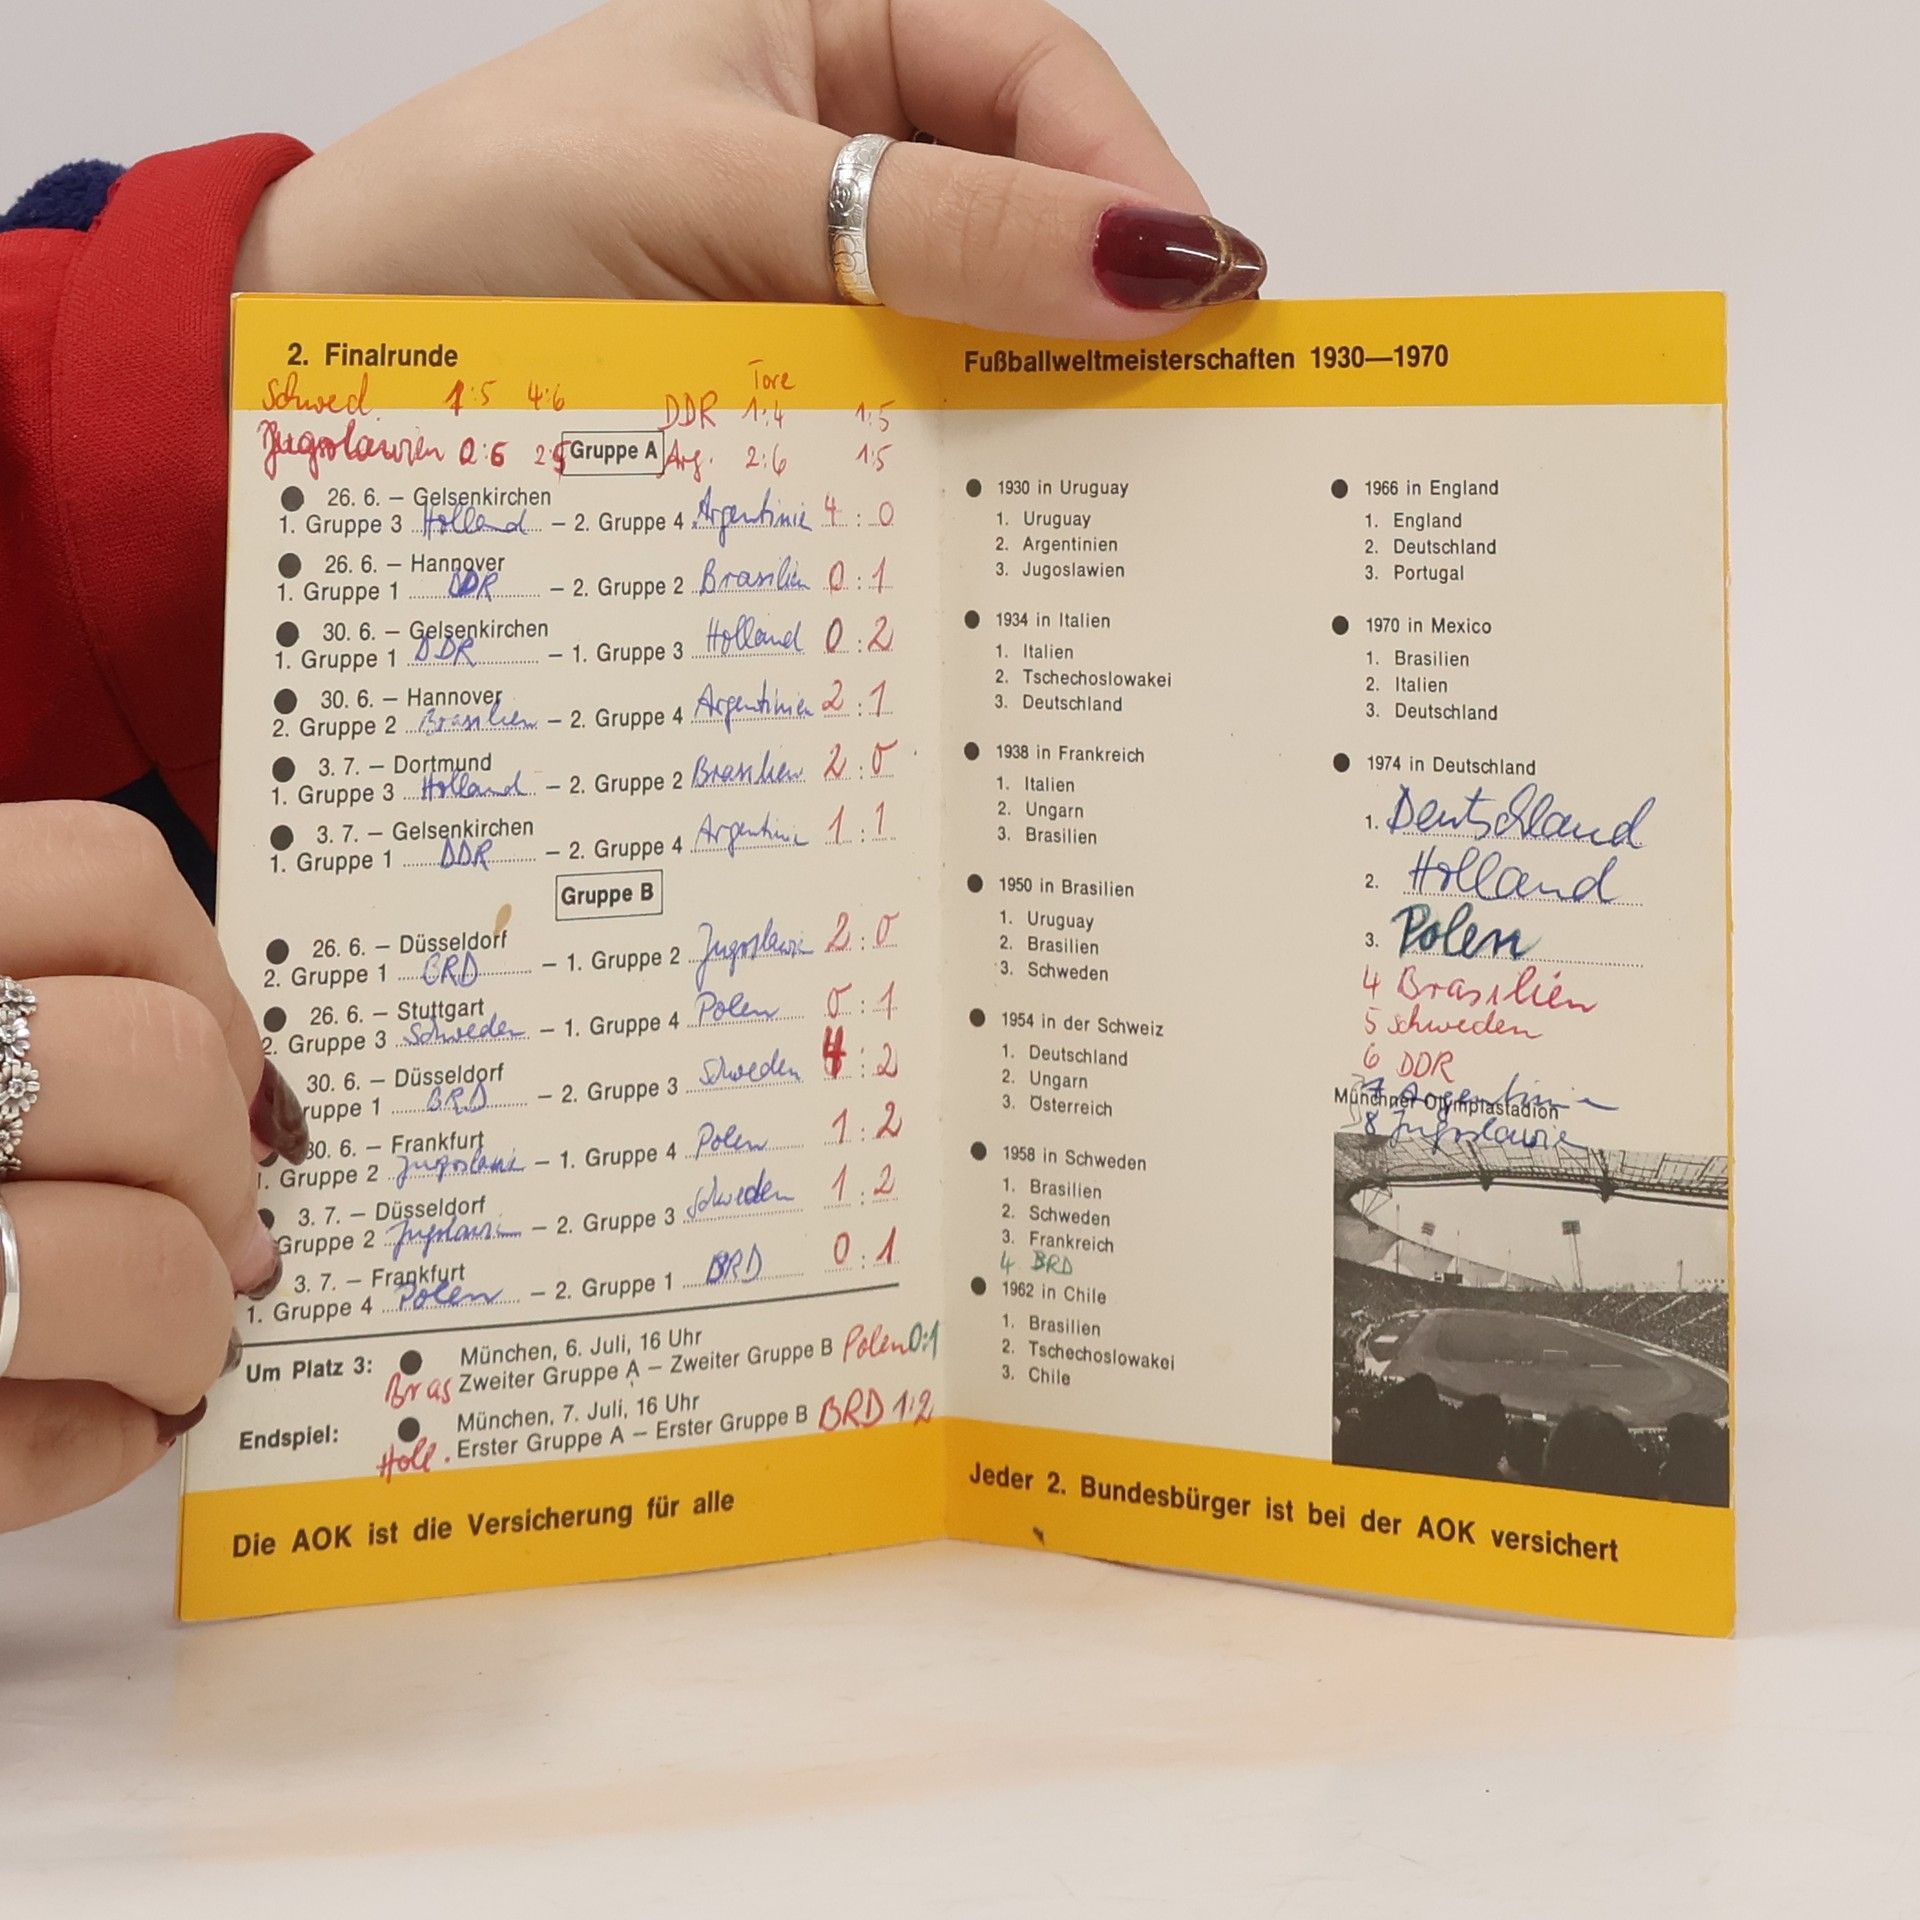 2. Finalrunde
Tore
Schwed. 1:5 4:6 DDR 1:4 1:5
Jugoslawien 0:6 2:5 Gruppe A Arg. 2:6 1:5
26. 6. — Gelsenkirchen
1. Gruppe 3 Holland — 2. Gruppe 4 Argentinie 4 : 0
26. 6. — Hannover
1. Gruppe 1 DDR — 2. Gruppe 2 Brasilien 0 : 1
30. 6. — Gelsenkirchen
1. Gruppe 1 DDR — 1. Gruppe 3 Holland 0 : 2
30. 6. — Hannover
2. Gruppe 2 Brasilien — 2. Gruppe 4 Argentinien 2 : 1
3. 7. — Dortmund
1. Gruppe 3 Holland — 2. Gruppe 2 Brasilien 2 : 0
3. 7. — Gelsenkirchen
1. Gruppe 1 DDR — 2. Gruppe 4 Argentinie 1 : 1
Gruppe B
26. 6. — Düsseldorf
2. Gruppe 1 BRD — 1. Gruppe 2 Jugoslawien 2 : 0
26. 6. — Stuttgart
2. Gruppe 3 Schweden — 1. Gruppe 4 Polen 0 : 1
30. 6. — Düsseldorf
ruppe 1 BRD — 2. Gruppe 3 Schweden 4 : 2
30. 6. — Frankfurt
1. Gruppe 2 Jugoslawi — 1. Gruppe 4 Polen 1 : 2
3. 7. — Düsseldorf
Gruppe 2 Jugoslawi — 2. Gruppe 3 Schweden 1 : 2
3. 7. — Frankfurt
1. Gruppe 4 Polen — 2. Gruppe 1 BRD 0 : 1
Um Platz 3: München, 6. Juli, 16 Uhr
Bras Zweiter Gruppe A — Zweiter Gruppe B Polen 0:1
Endspiel: München, 7. Juli, 16 Uhr
Holl. Erster Gruppe A — Erster Gruppe B BRD 1:2
Die AOK ist die Versicherung für alle
Fußballweltmeisterschaften 1930—1970
1930 in Uruguay
1. Uruguay
2. Argentinien
3. Jugoslawien
1934 in Italien
1. Italien
2. Tschechoslowakei
3. Deutschland
1938 in Frankreich
1. Italien
2. Ungarn
3. Brasilien
1950 in Brasilien
1. Uruguay
2. Brasilien
3. Schweden
1954 in der Schweiz
1. Deutschland
2. Ungarn
3. Österreich
1958 in Schweden
1. Brasilien
2. Schweden
3. Frankreich
4 BRD
1962 in Chile
1. Brasilien
2. Tschechoslowakei
3. Chile
1966 in England
1. England
2. Deutschland
3. Portugal
1970 in Mexico
1. Brasilien
2. Italien
3. Deutschland
1974 in Deutschland
1. Deutschland
2. Holland
3. Polen
4 Brasilien
5 Schweden
6 DDR
7 Argentinie
Münchner Olympiastadion
8 Jugoslawie
Jeder 2. Bundesbürger ist bei der AOK versichert